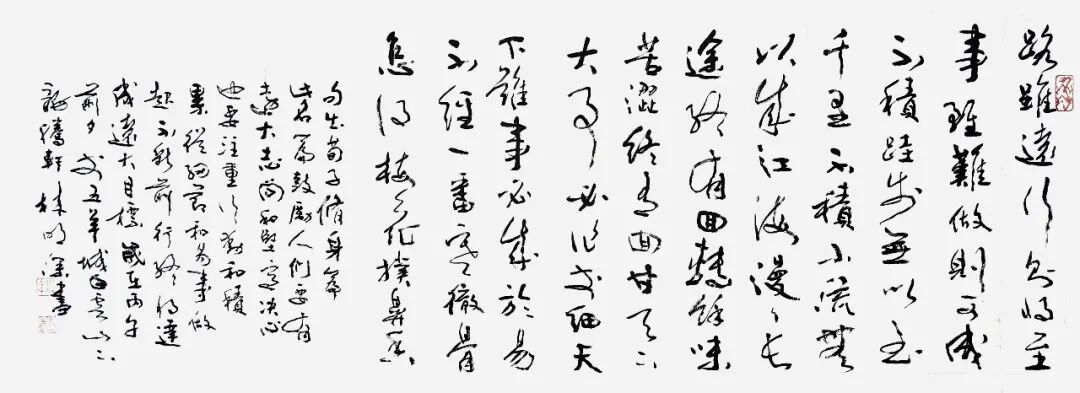 路雖遠行則將至
事雖難做則可成
不積跬步無以至
千里不積小流無
以成江海漫漫長
途終有回轉餘味
苦澀終有回甘天下
大事必作於細天
下難事必成於易
不經一番寒徹骨
怎得梅花撲鼻香
句出荀子脩身等
此名篇鼓勵人們要有
遠大志向和堅定決心
也要注重行動和積
累從細節和易事做
起不斷前行終將達
成遠大目標歲在丙午
前夕於五羊城白雲山下
騰軒林明深書